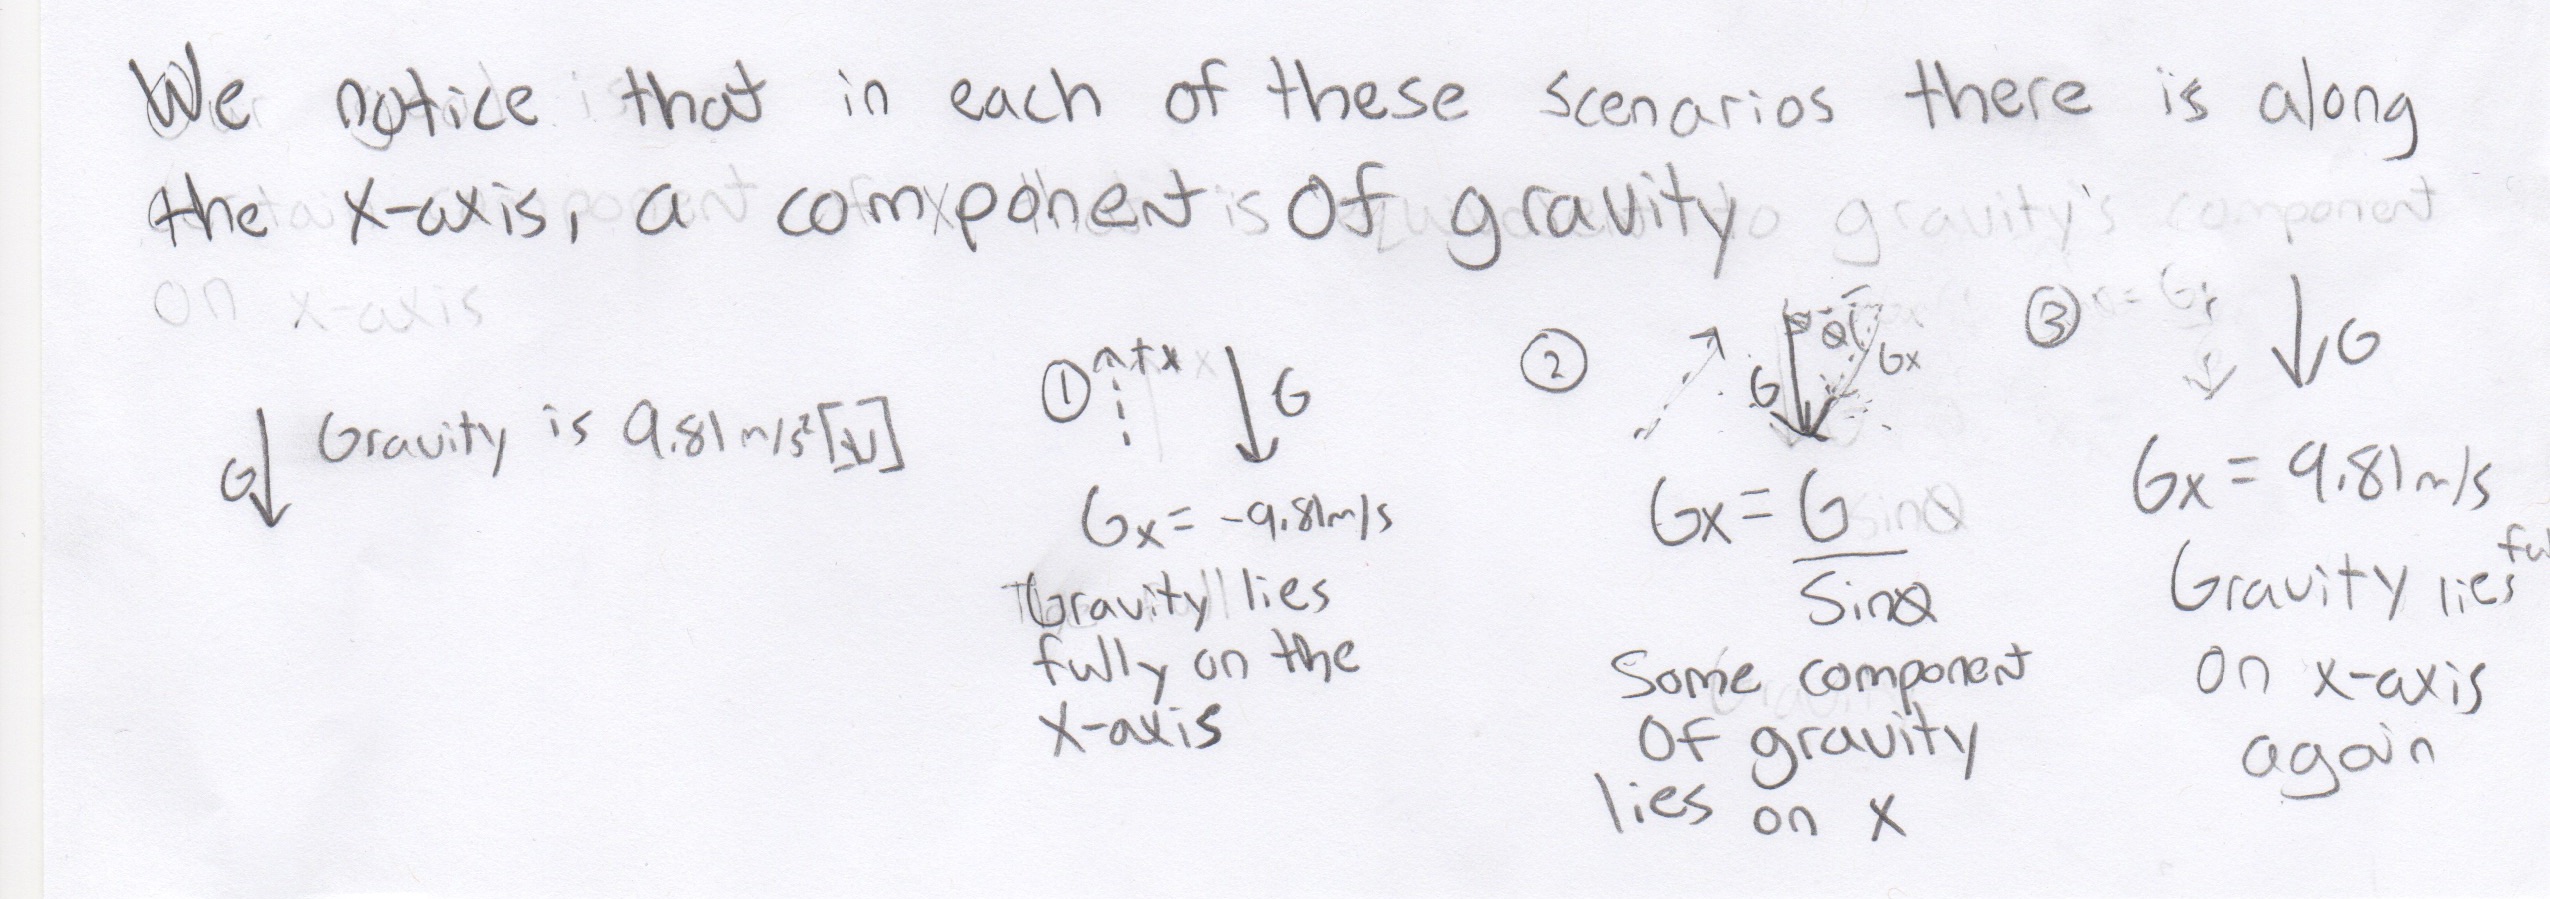 We notice that in each of these scenarios there is along
the x-axis, a component of gravity
on x-axis
G Gravity is 9.81 m/s² [↓]
① +x G
Gx = -9.81 m/s
Gravity lies
fully on the
x-axis
② G θ Gx
Gx = G
Sinθ
Some component
of gravity
lies on x
③ G
Gx = 9.81 m/s
Gravity lies
on x-axis
again